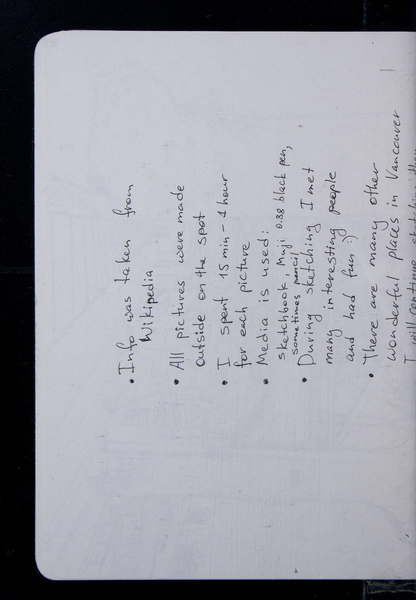 • Info was taken from
Wikipedia
• All pictures were made
outside on the spot
• I spent 15 min - 1 hour
for each picture
• Media is used:
sketchbook, Muji 0.38 black pen,
sometimes pencil
• During sketching I met
many interesting people
and had fun :)
• There are many other
wonderful places in Vancouver
I will continue